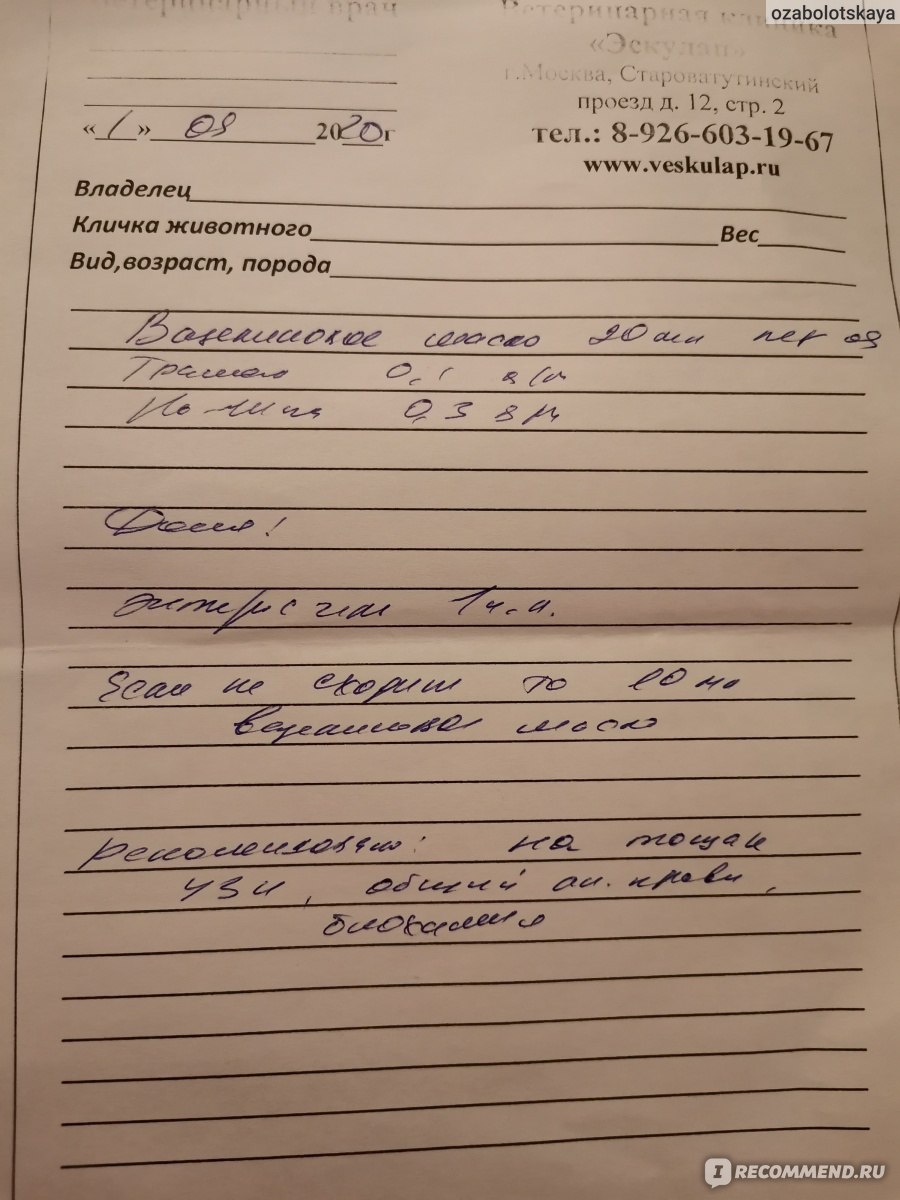 ozabolotskaya
Ветеринарный врач
Ветеринарная клиника
«Эскулап»
г.Москва, Староватутинский
проезд д. 12, стр. 2
тел.: 8-926-603-19-67
www.veskulap.ru
«1» 09 2020г
Владелец
Кличка животного Вес
Вид,возраст, порода
Вазелиновое масло 20 мл per os
0,1 в/м
Но-шпа 0,3 в/м
Дома!
1 ч.л.
Если не сходит то 10 мл
вазелиновое масло
рекомендовано: на тощак
УЗИ, общий ан. крови,
биохимия
IRECOMMEND.RU